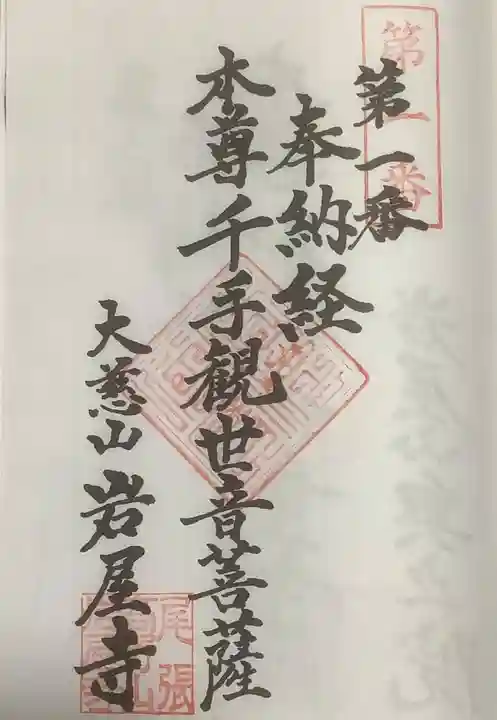 第一番
第一番
奉納経
本尊千手観世音菩薩
大慈山 岩屋寺
尾張